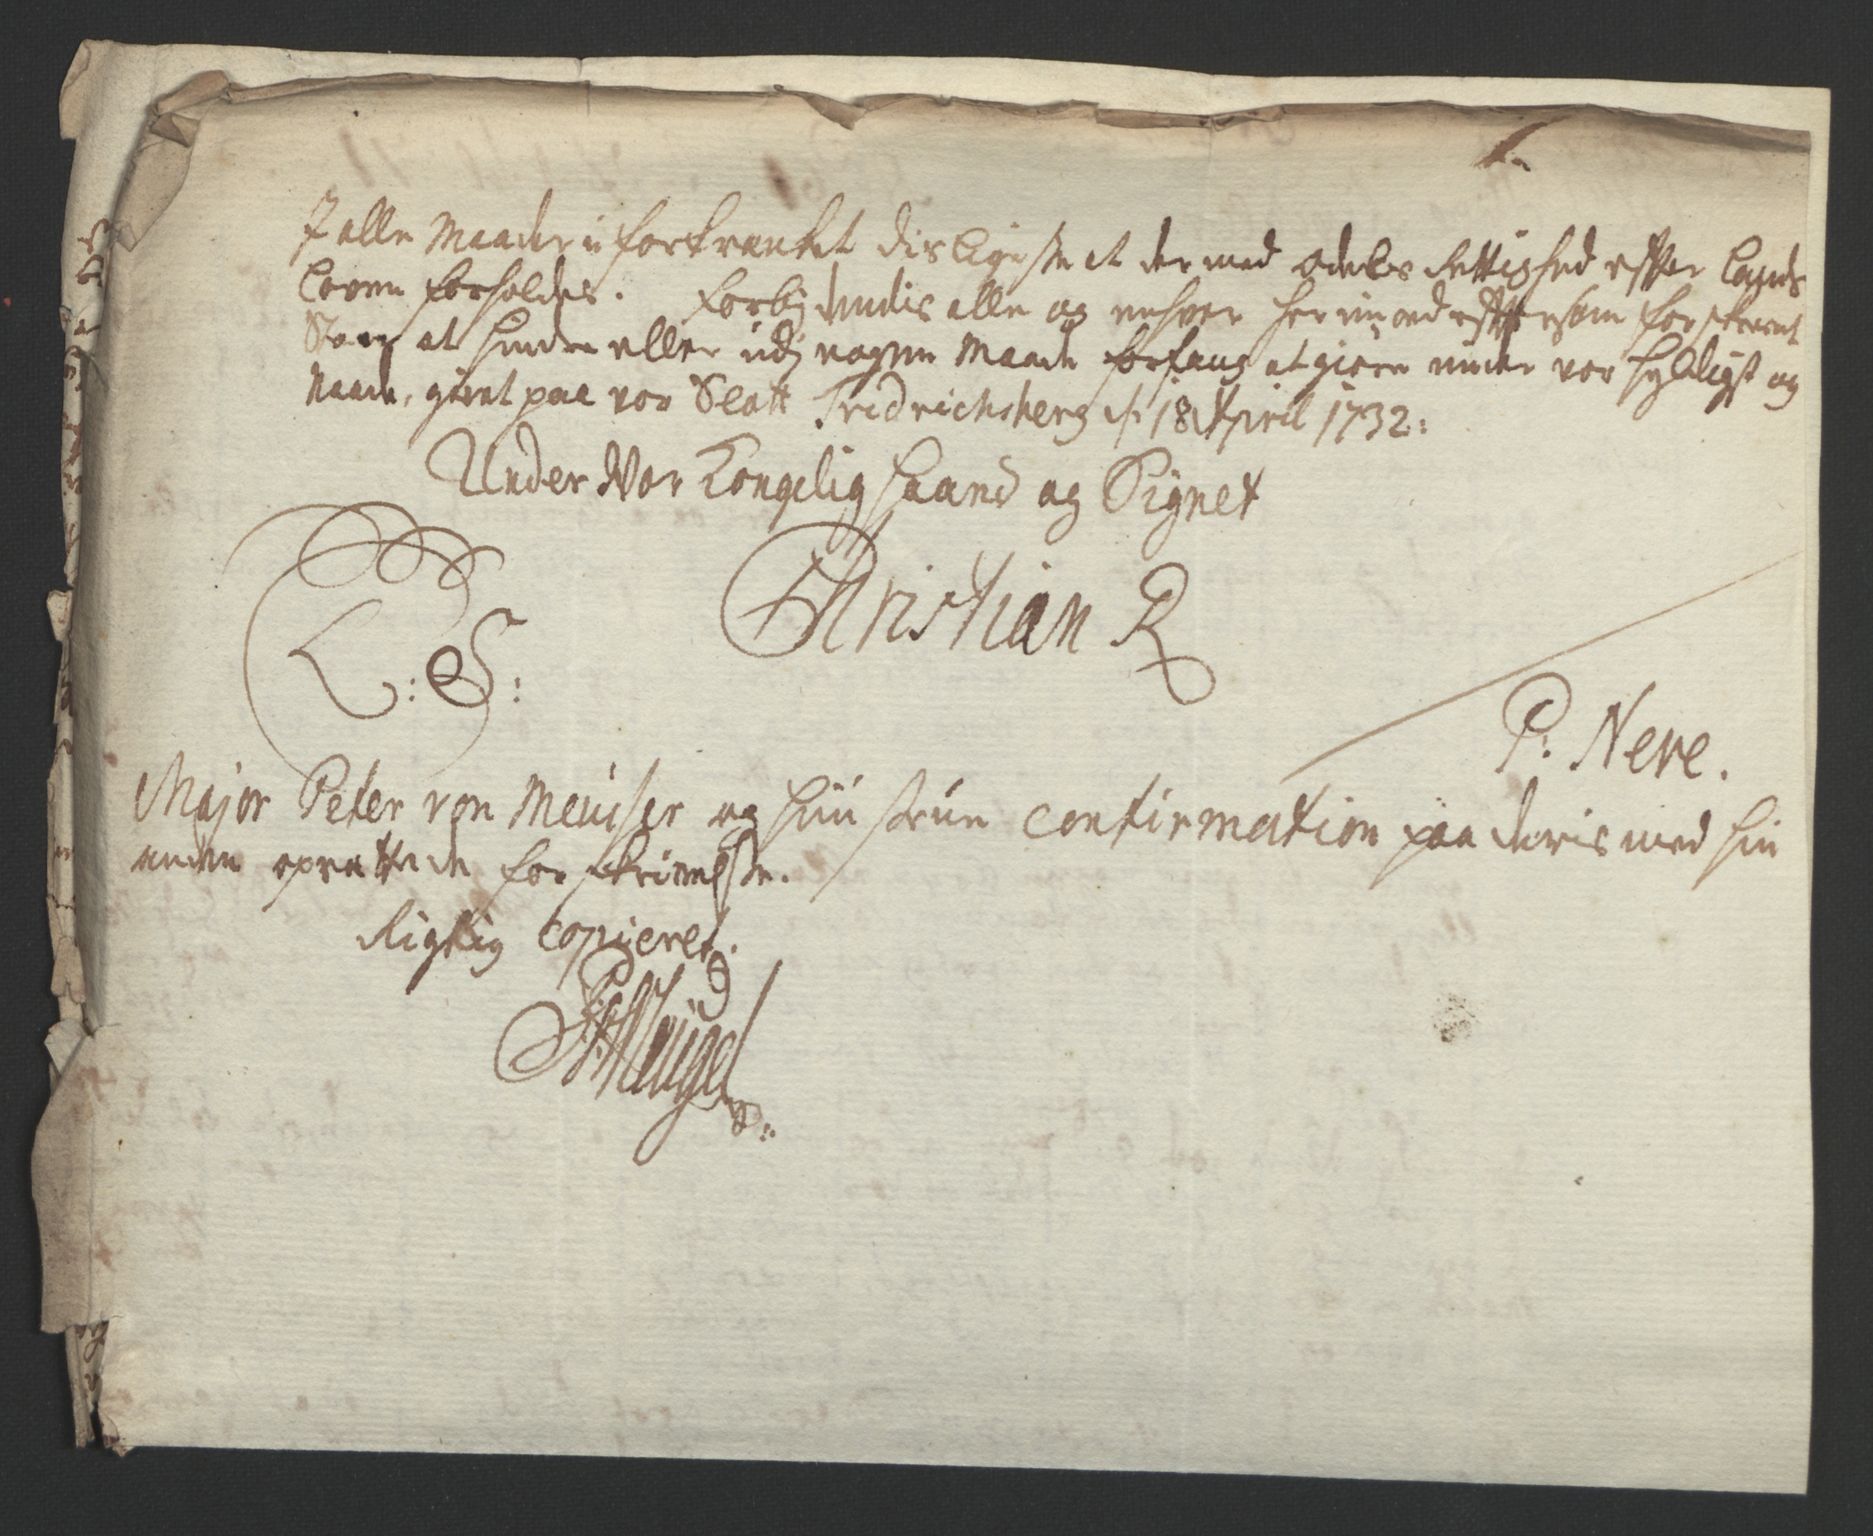 I alle Maader uforkrænket disligeste at dermed odels Rettighed effter Lands
Loven forholdes. Forbydendis alle og enhver herimod effter som forskrevet
Staar at hindre eller udj nogen Maade forfang at giøre under vor hyldigst og
Naade, givet paa vor Slott Fridrichsberg d: 18 April 1732:
Under Vor Kongelig Haand og Signet
Christian R
L: S:
P: Neve.
Major Peter von Meuiser og Huustrue Confirmation paa deris med hin
anden oprettede forskrivelse.
Rigtig Copieret.